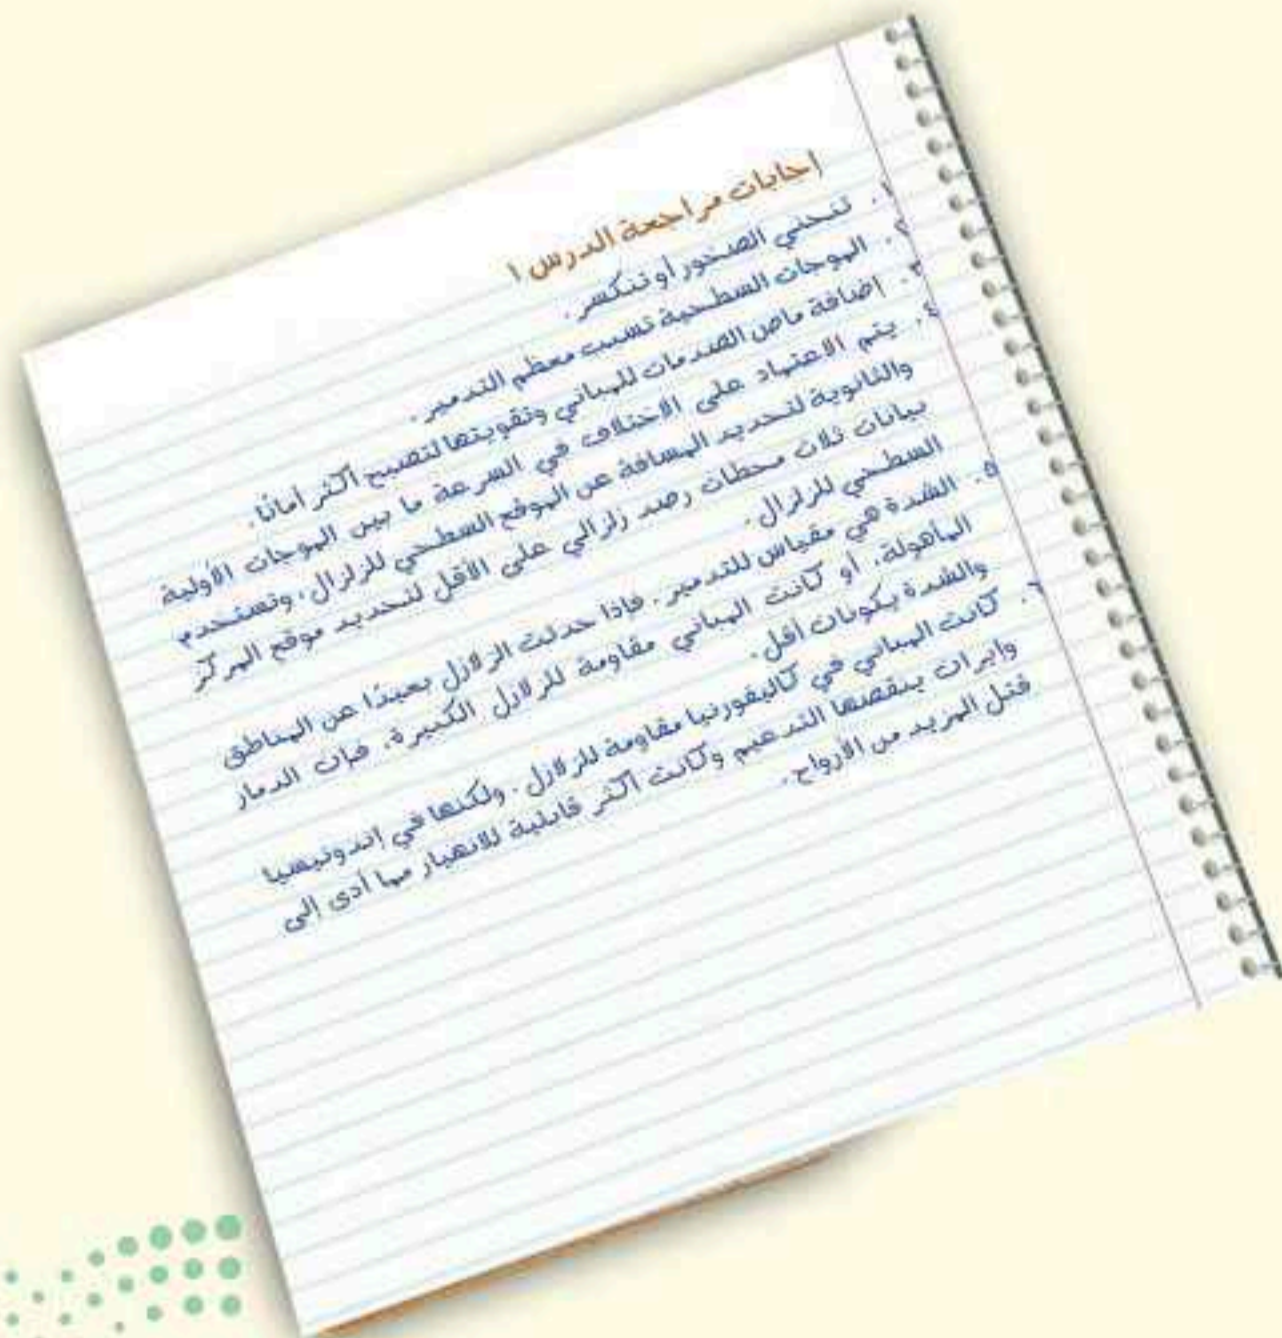 إجابات مراجعة الدرس ١
١. تنحني الصخور أو تنكسر.
٢. الموجات السطحية تسبب معظم التدمير.
٣. اضافة ماص الصدمات للمباني وتقويتها لتصبح أكثر أمانًا.
٤. يتم الاعتماد على الاختلاف في السرعة ما بين الموجات الأولية
والثانوية لتحديد المسافة عن الموقع السطحي للزلزال، وتستخدم
بيانات ثلاث محطات رصد زلزالي على الأقل لتحديد موقع المركز
السطحي للزلزال.
٥. الشدة هي مقياس للتدمير. فإذا حدثت الزلازل بعيدًا عن المناطق
المأهولة، أو كانت المباني مقاومة للزلازل الكبيرة، فإن الدمار
والشدة يكونان أقل.
٦. كانت المباني في كاليفورنيا مقاومة للزلازل. ولكنها في إندونيسيا
وايران ينقصها التدعيم وكانت أكثر قابلية للانهيار مما أدى إلى
قتل المزيد من الأرواح.